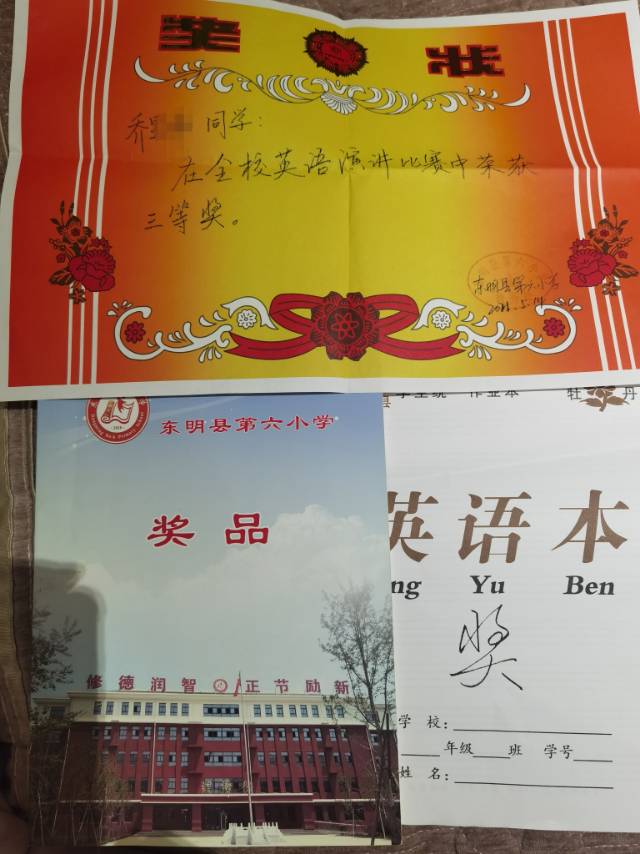 奖 状
乔
同学：
在全校英语演讲比赛中荣获
三等奖。
东明县第六小学
东明县第六小学
奖品
修德润智 正节励新
作业本 牡丹
英语本
ng Yu Ben
奖
学校：
年级 班 学号
姓名：